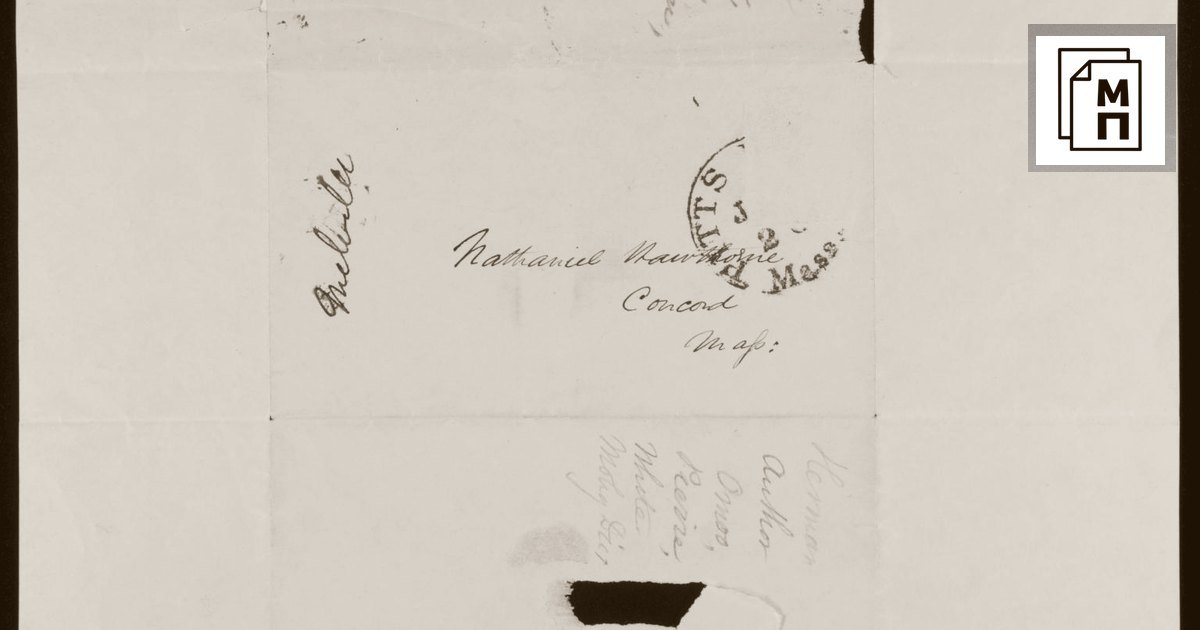 Melville
Nathaniel Hawthorne
Concord
Maſs:
PITTS
Mass.
Herman
Author
Omoo,
White
Moby Dic
М
П